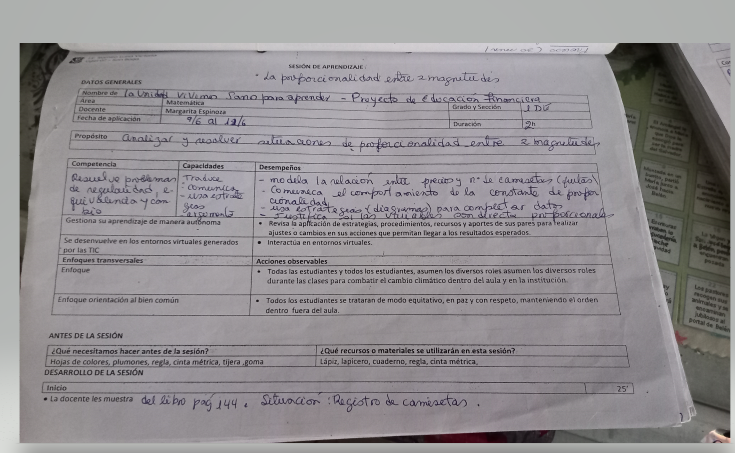 SESIÓN DE APRENDIZAJE:
• La proporcionalidad entre 2 magnitudes
DATOS GENERALES
Nombre de la Unidad Vivimos Sano para aprender - Proyecto de Educación Financiera
Área Matemática
Docente Margarita Espinoza Grado y Sección 1 D G
Fecha de aplicación 9/6 al 12/6 Duración 2h
Propósito analizar y resolver situaciones de proporcionalidad entre 2 magnitudes
Competencia Capacidades Desempeños
Resuelve problemas Traduce - modela la relación entre precio y n° de camisetas
de regularidad, e - comunica - Comunica el comportamiento de la constante de propor
equivalencia y cam - usa estrate cionalidad
bio gias - usa estrategias (diagramas) para completar datos
- argumenta - Justifica si las variables son directa proporcionales
Gestiona su aprendizaje de manera autónoma • Revisa la aplicación de estrategias, procedimientos, recursos y aportes de sus pares para realizar
ajustes o cambios en sus acciones que permitan llegar a los resultados esperados.
Se desenvuelve en los entornos virtuales generados • Interactúa en entornos virtuales.
por las TIC
Enfoques transversales Acciones observables
Enfoque • Todas las estudiantes y todos los estudiantes, asumen los diversos roles asumen los diversos roles
durante las clases para combatir el cambio climático dentro del aula y en la institución.
Enfoque orientación al bien común • Todos los estudiantes se trataran de modo equitativo, en paz y con respeto, manteniendo el orden
dentro fuera del aula.
ANTES DE LA SESIÓN
¿Qué necesitamos hacer antes de la sesión? ¿Qué recursos o materiales se utilizarán en esta sesión?
Hojas de colores, plumones, regla, cinta métrica, tijera ,goma Lápiz, lapicero, cuaderno, regla, cinta métrica,
DESARROLLO DE LA SESIÓN
Inicio 25'
• La docente les muestra del libro pag 144. Situación: Registro de camisetas.